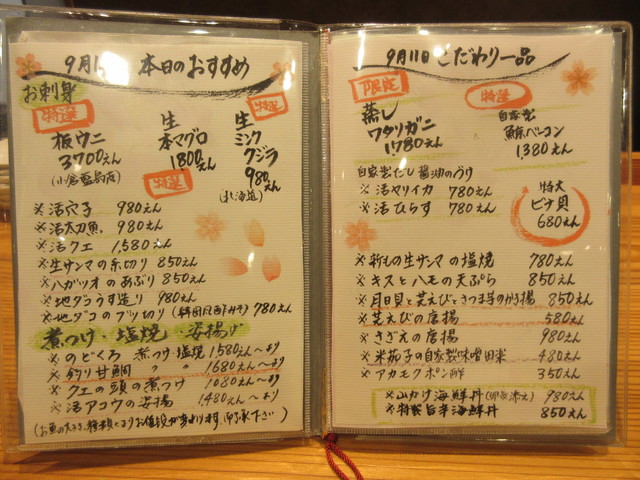 9月1 本日のおすすめ
お刺身
特選
板ウニ
3700えん
生
本マグロ
1800えん
特選
特選
生
ミンク
クジラ
980えん
(北海道)
※活穴子 980えん
※活太刀魚 980えん
※活クエ 1,580えん
※生サンマの糸切り 850えん
※ハガツオのあぶり 850えん
※地ダコうす造り 980えん
※地ダコのブツ切り 780えん
煮つけ・塩焼・姿揚げ
※のどぐろ 煮つけ・塩焼 1580えん〜より
※釣り甘鯛 〃 〃 1680えん〜より
※クエの頭の煮つけ 1080えん〜より
※活アコウの姿揚 1,480えん〜より
(お魚の大きさ、種類によりお値段が変わります、御了承下さい)
9月11日 こだわり一品
限定
蒸し
ワタリガニ
1780えん
特選
自家製
鯨ベーコン
1,380えん
自家製だし醤油のづけ
※活ヤリイカ 780えん
※活ひらす 780えん
特大
ビナ貝
680えん
※新もの生サンマの塩焼 780えん
※キスとハモの天ぷら 850えん
※月日貝と芝えびとさつま芋のかき揚 850えん
※芝えびの唐揚 580えん
※さざえの唐揚 980えん
※米茄子の自家製味噌田楽 480えん
※アカモクポン酢 350えん
※山かけ海鮮丼(卵黄添え) 980えん
※特製旨辛海鮮丼 850えん